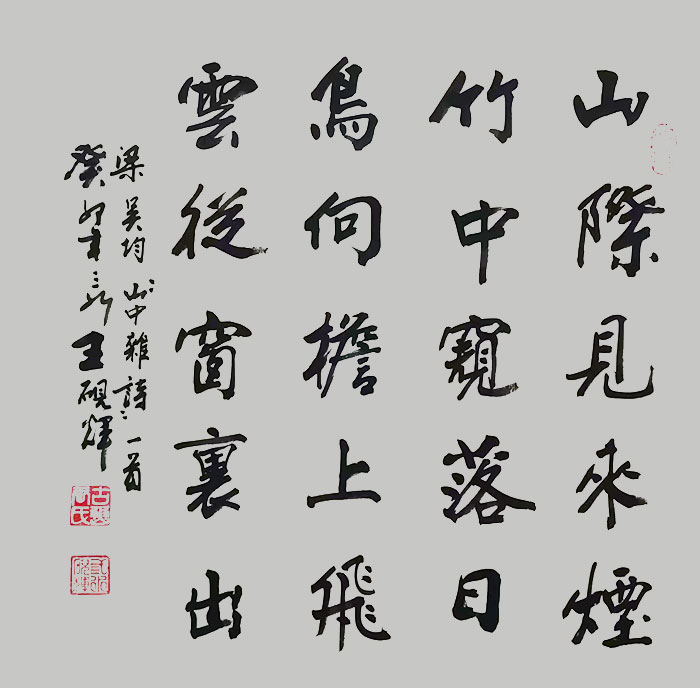 山際見來煙
竹中窺落日
鳥向檐上飛
雲從窗裏出
梁吴均山中雜詩一首
癸卯年王硯輝